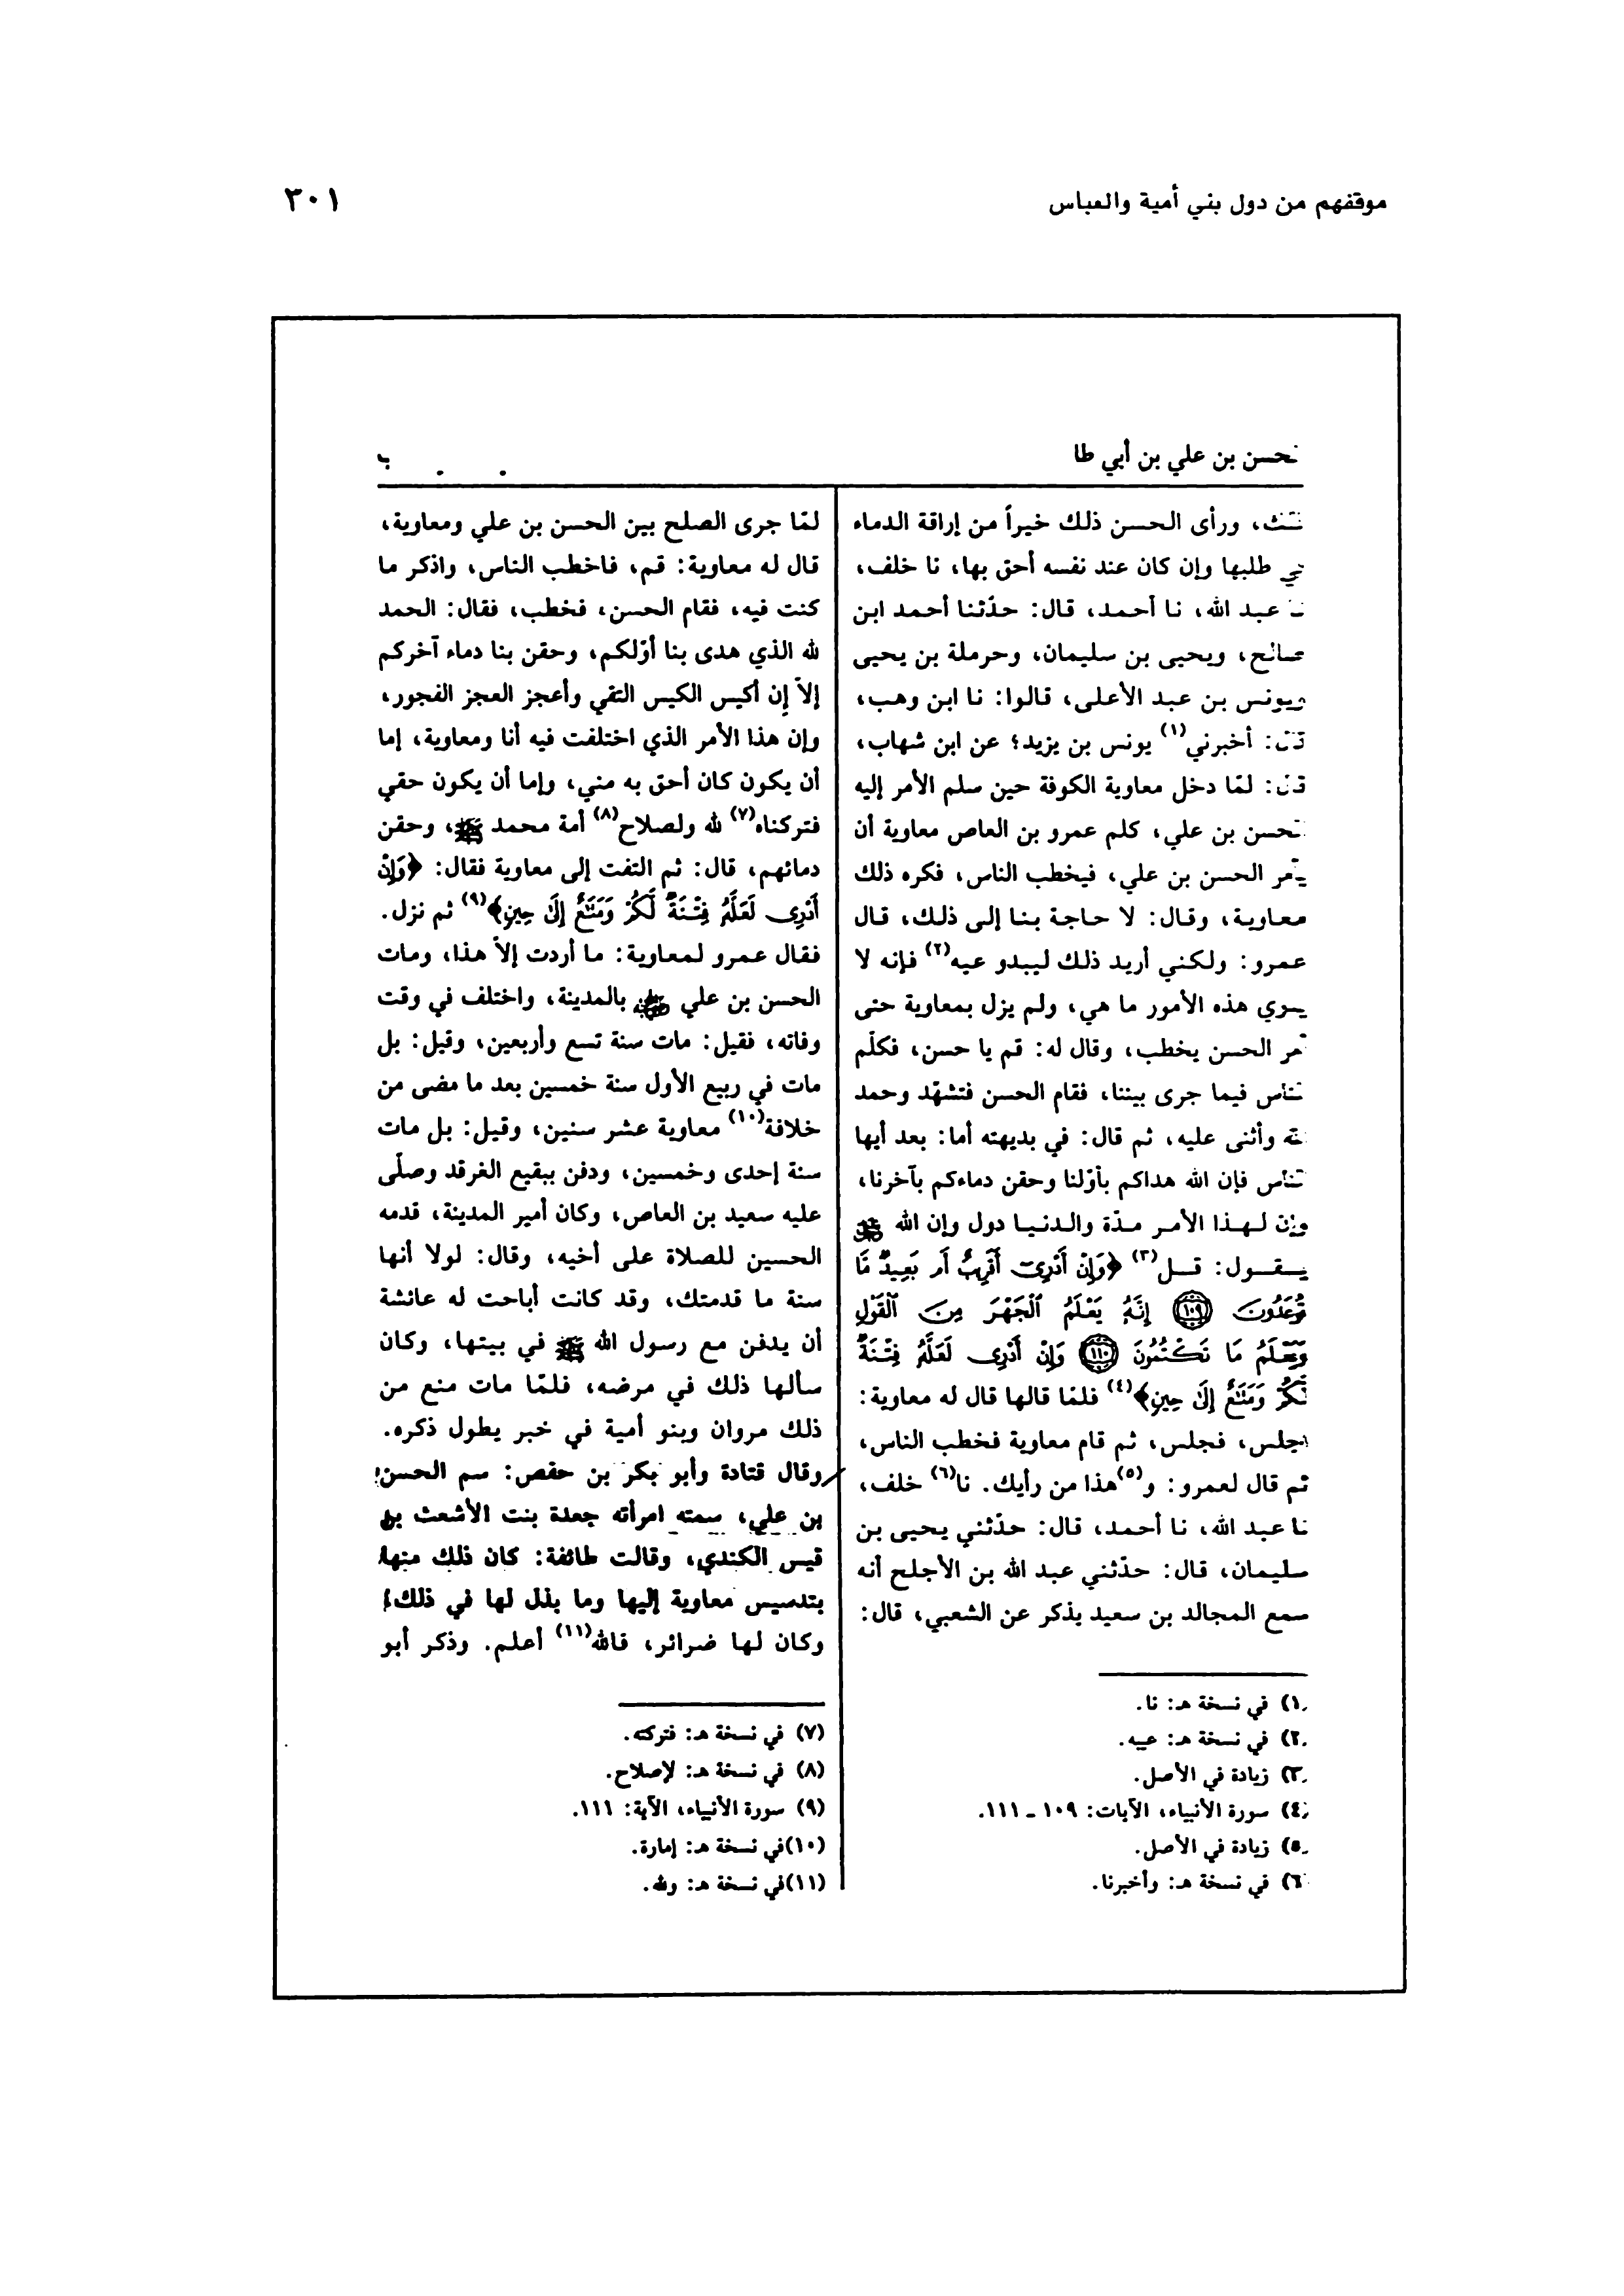 موقفهم من دول بني أمية والعباس
٣٠١
لحسن بن علي بن أبي طا
ب
ورأى الحسن ذلك خيراً من إراقة الدماء
في طلبها وإن كان عند نفسه أحق بها، نا خلف،
نا عبد الله، نا أحمد، قال: حدّثنا أحمد ابن
صالح، ويحيى بن سليمان، وحرملة بن يحيى
ويونس بن عبد الأعلى، قالوا: نا ابن وهب،
قال: أخبرني(١) يونس بن يزيد؛ عن ابن شهاب،
قال: لمّا دخل معاوية الكوفة حين سلم الأمر إليه
لحسن بن علي، كلم عمرو بن العاص معاوية أن
يأمر الحسن بن علي، فيخطب الناس، فكره ذلك
معاوية، وقال: لا حاجة بنا إلى ذلك، قال
عمرو: ولكني أريد ذلك ليبدو عيه(٢) فإنه لا
يدري هذه الأمور ما هي، ولم يزل بمعاوية حتى
أمر الحسن يخطب، وقال له: قم يا حسن، فكلّم
لناس فيما جرى بيننا، فقام الحسن فتشهّد وحمد
الله وأثنى عليه، ثم قال: في بديهته أما: بعد أيها
لناس فإن الله هداكم بأوّلنا وحقن دماءكم بآخرنا،
وإن لـهـذا الأمـر مـدّة والـدنـيـا دول وإن الله عز وجل
يـقـول: قـل(٣) ﴿وَإِنْ أَدْرِيٓ أَقَرِيبٌ أَم بَعِيدٌ مَّا
تُوعَدُونَ ١٠٩ إِنَّهُ يَعْلَمُ ٱلْجَهْرَ مِنَ ٱلْقَوْلِ
وَيَعْلَمُ مَا تَكْتُمُونَ ١١٠ وَإِنْ أَدْرِى لَعَلَّهُ فِتْنَةٌ
لَّكُمْ وَمَتَٰعٌ إِلَىٰ حِينٍ﴾(٤) فلمّا قالها قال له معاوية:
اجلس، فجلس، ثم قام معاوية فخطب الناس،
ثم قال لعمرو: و(٥)هذا من رأيك. نا(٦) خلف،
نا عبد الله، نا أحمد، قال: حدّثني يحيى بن
سليمان، قال: حدّثني عبد الله بن الأجلح أنه
سمع المجالد بن سعيد يذكر عن الشعبي، قال:
(١) في نسخة هـ: نا.
(٢) في نسخة هـ: عييه.
(٣) زيادة في الأصل.
(٤) سورة الأنبياء، الآيات: ١٠٩ ـ ١١١.
(٥) زيادة في الأصل.
(٦) في نسخة هـ: وأخبرنا.
لمّا جرى الصلح بين الحسن بن علي ومعاوية،
قال له معاوية: قم، فاخطب الناس، واذكر ما
كنت فيه، فقام الحسن، فخطب، فقال: الحمد
لله الذي هدى بنا أوّلكم، وحقن بنا دماء آخركم
إلاّ إن أكيس الكيس التقي وأعجز العجز الفجور،
وإن هذا الأمر الذي اختلفت فيه أنا ومعاوية، إما
أن يكون كان أحق به مني، وإما أن يكون حقي
فتركناه(٧) لله ولصلاح(٨) أمة محمد ﷺ، وحقن
دمائهم، قال: ثم التفت إلى معاوية فقال: ﴿وَإِنْ
أَدْرِى لَعَلَّهُ فِتْنَةٌ لَّكُمْ وَمَتَٰعٌ إِلَىٰ حِينٍ﴾(٩) ثم نزل.
فقال عمرو لمعاوية: ما أردت إلاّ هذا، ومات
الحسن بن علي بالمدينة، واختلف في وقت
وفاته، فقيل: مات سنة تسع وأربعين، وقيل: بل
مات في ربيع الأول سنة خمسين بعد ما مضى من
خلافة(١٠) معاوية عشر سنين، وقيل: بل مات
سنة إحدى وخمسين، ودفن ببقيع الغرقد وصلّى
عليه سعيد بن العاص، وكان أمير المدينة، قدمه
الحسين للصلاة على أخيه، وقال: لولا أنها
سنة ما قدمتك، وقد كانت أباحت له عائشة
أن يدفن مع رسول الله ﷺ في بيتها، وكان
سألها ذلك في مرضه، فلمّا مات منع من
ذلك مروان وبنو أمية في خبر يطول ذكره.
وقال قتادة وأبو بكر بن حفص: سم الحسن
بن علي، سمته امرأته جعدة بنت الأشعث بن
قيس الكندي، وقالت طائفة: كان ذلك منها
بتدسيس معاوية إليها وما بذل لها في ذلك
وكان لها ضرائر، فالله(١١) أعلم. وذكر أبو
(٧) في نسخة هـ: فتركته.
(٨) في نسخة هـ: لإصلاح.
(٩) سورة الأنبياء، الآية: ١١١.
(١٠)في نسخة هـ: إمارة.
(١١)في نسخة هـ: والله.